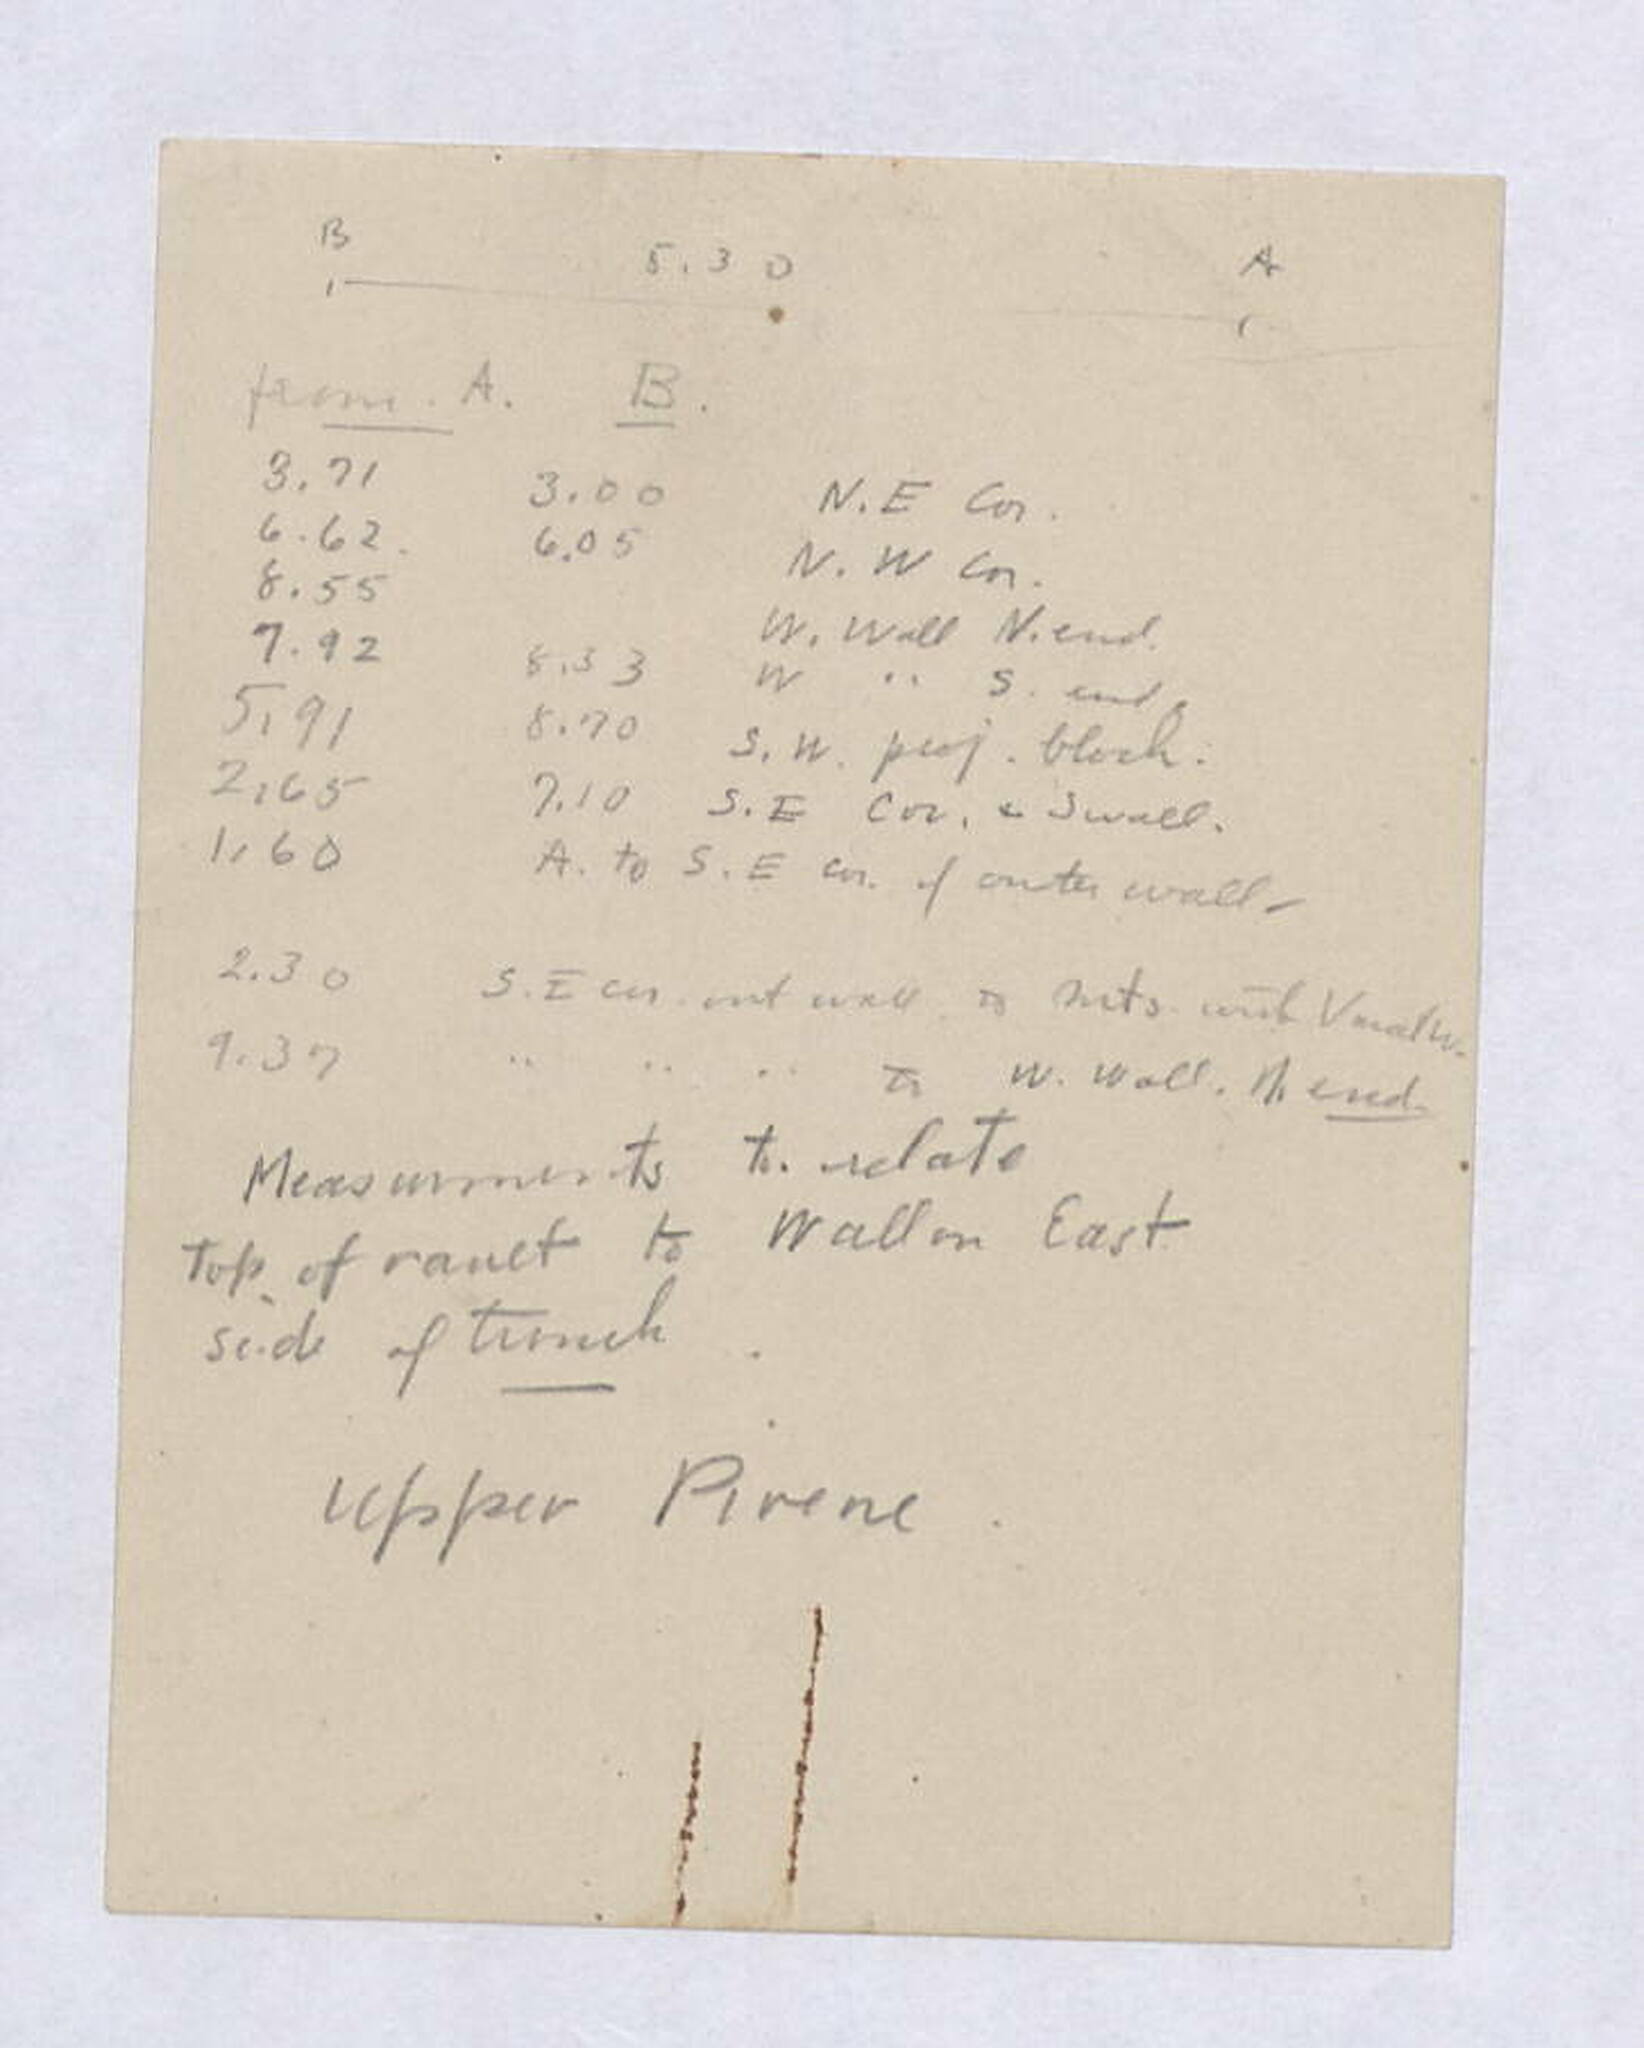 B 5.30 A
from. A. B.
3.71 3.00 N.E Cor.
6.62. 6.05 N.W Cor.
8.55 W. Wall N. end.
7.92 8.33 W " S. end.
5.91 8.70 S.W. proj. block.
2.65 7.10 S.E Cor. & S wall.
1.60 A. to S.E cor. of outer wall
2.30 S.E cor. out wall to with
9.37 " " " to W. Wall. N. end
Measurements to relate
top of vault to Wall on East
side of trench
Upper Pirene.